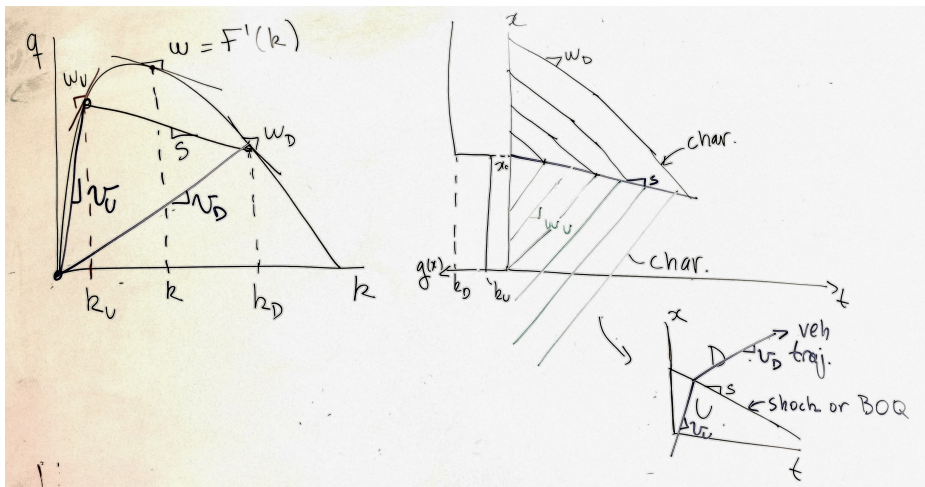 q
w = F'(k)
w_U
w_D
S
v_U
v_D
k_U
k
k_D
k
x
w_D
char.
x_0
s
w_U
char.
g(x)
k_D
k_U
t
x
veh
traj.
D
v_D
s
U
shock or BOQ
v_U
t